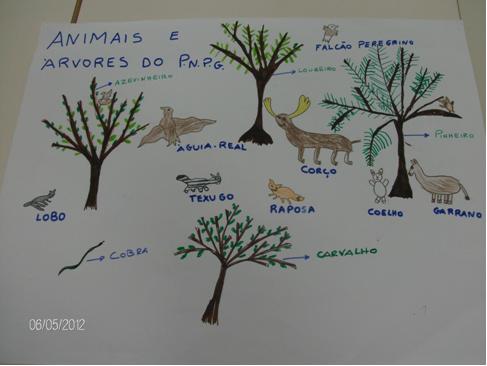 ANIMAIS E
ARVORES DO P.N.P.G.
FALCÃO PEREGRINO
AZEVINHEIRO
LOUREIRO
PINHEIRO
AGUIA-REAL
CORÇO
LOBO
TEXUGO
RAPOSA
COELHO
GARRANO
COBRA
CARVALHO
06/05/2012